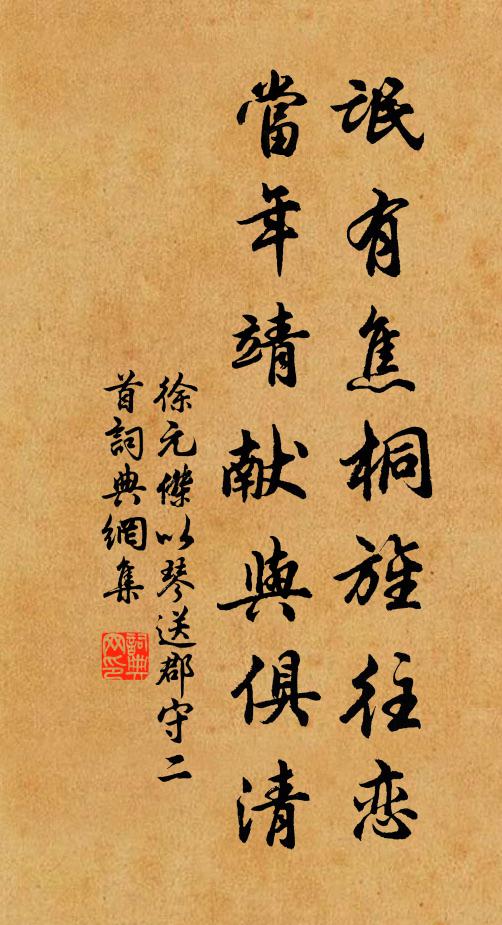 泯有焦桐旌往恋
當年靖献與俱清
徐元傑以琴送郡守二
首詞典網集
詞典
网印